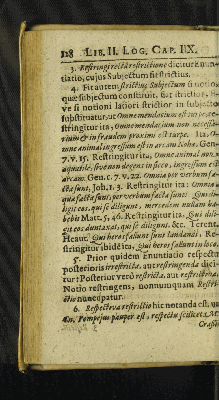 128 LIB. II. LOG. CAP. IX.
3. Restringi recta restrictione dicitur Enun-
tiatio, cujus Subjectum fit strictius.
4. Fit autem strictius Subjectum si notioni
quæ subjectum constituit, fiat strictior,
ve si notioni latiori strictior in subjecto
substituatur, ut Omne mendacium est turpe re-
stringitur ita, Omne mendacium non
in fraudem proximi est turpe. Ita, O-
mne animal ingressum est in arcam Nohe. Gen.
7. v. 15. Restringitur ita, Omne animal non
aquatile, seu non degens in sicco, ingressum est
arcam. Gen. c. 7. v. 22. Omnia per verbum fa-
cta sunt, Joh. 1. 3. Restringitur ita: Omnia
quæ facta sunt, per verbum facta sunt. Qui di-
ligit eos, qui se diligunt, mercedem nullam ha-
bebit Matt. 5, 46. Restringitur ita, Qui dili-
git eos duntaxat, qui se diligunt. &c. Terent.
Heaut. Qui heros fallunt sunt laudandi. Re-
stringitur ibidē ita, Qui heros fallunt in loco.
5. Prior quidem Enuntiatio respectu
posterioris irrestricta, aut restringenda dici-
tur: Posterior verò restricta, aut restrictiva.
Notio restringens, nonnunquam Restri-
ctio nuncupatur.
6. Respectiva restrictio hic notanda est, ut
Cn. Pompejus pauper est, respectu scilicet M.
Crassi